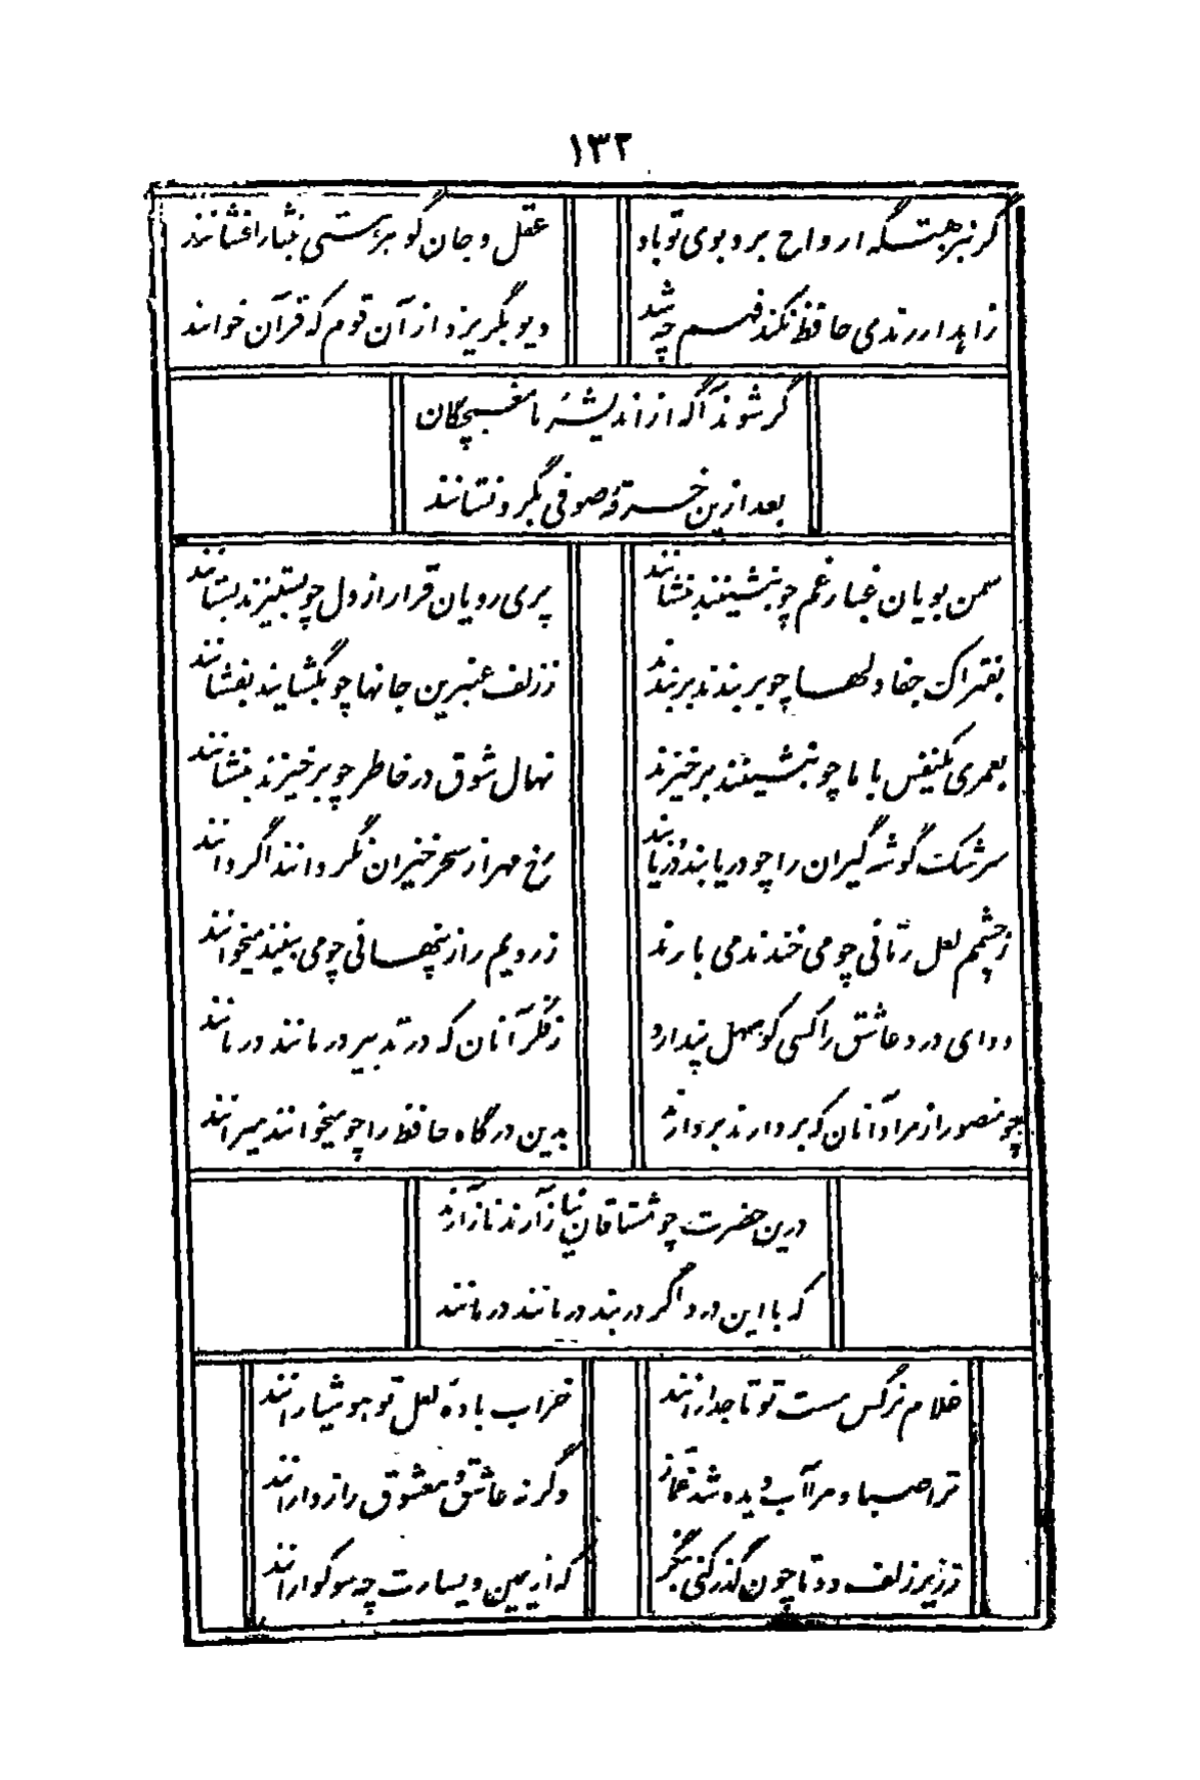 ۱۳۲
گر بنزهتگه ارواح برد بوی تو باد
عقل و جان گوهر هستی بنثار افشانند
زاهد ار رندی حافظ نکند فهم چه شد
دیو بگریزد از آن قوم که قرآن خوانند
گر شوند آگه از اندیشهٔ ما مغبچگان
بعد ازین خرقهٔ صوفی بگرو نستانند
سمن بویان غبار غم چو بنشینند بنشانند
پری رویان قرار از دل چو بستیزند بستانند
بفتراک جفا دلها چو بربندند بربندند
ز زلف عنبرین جانها چو بگشایند بفشانند
بعمری یکنفس با ما چو بنشینند برخیزند
نهال شوق در خاطر چو برخیزند بنشانند
سرشک گوشه گیران را چو دریابند دُر یابند
رخ مهر از سحر خیزان نگردانند اگر دانند
ز چشمم لعل رمّانی چو می خندند می بارند
ز رویم راز پنهانی چو می بینند میخوانند
دوای درد عاشق را کسی کو سهل پندارد
ز فکر آنان که در تدبیر درمانند درمانند
چو منصور از مراد آنان که بردارند بر دارند
بدین درگاه حافظ را چو میخوانند میرانند
درین حضرت چو مشتاقان نیاز آرند ناز آرند
که با این درد اگر در بند درمانند درمانند
غلام نرگس مست تو تاجدارانند
خراب بادهٔ لعل تو هوشیارانند
ترا صبا و مرا آب دیده شد غمّاز
وگرنه عاشق و معشوق رازدارانند
ز زیر زلف دوتا چون گذر کنی بنگر
که از یمین و یسارت چه سوگوارانند